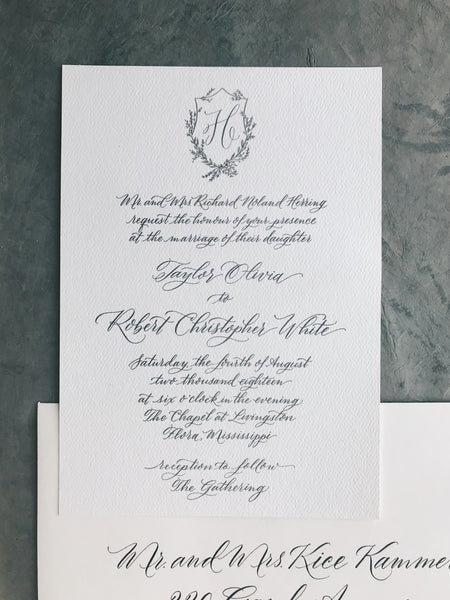 H
Mr. and Mrs. Richard Noland Herring
request the honour of your presence
at the marriage of their daughter
Taylor Olivia
to
Robert Christopher White
Saturday, the fourth of August
two thousand eighteen
at six o'clock in the evening
The Chapel at Livingston
Flora, Mississippi
reception to follow
The Gathering
Mr. and Mrs. Kice Kammer